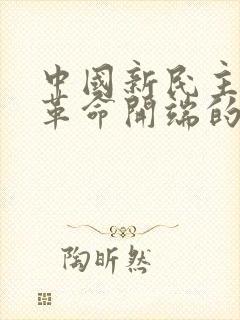 中國新民主
革命開端的
陶昕然